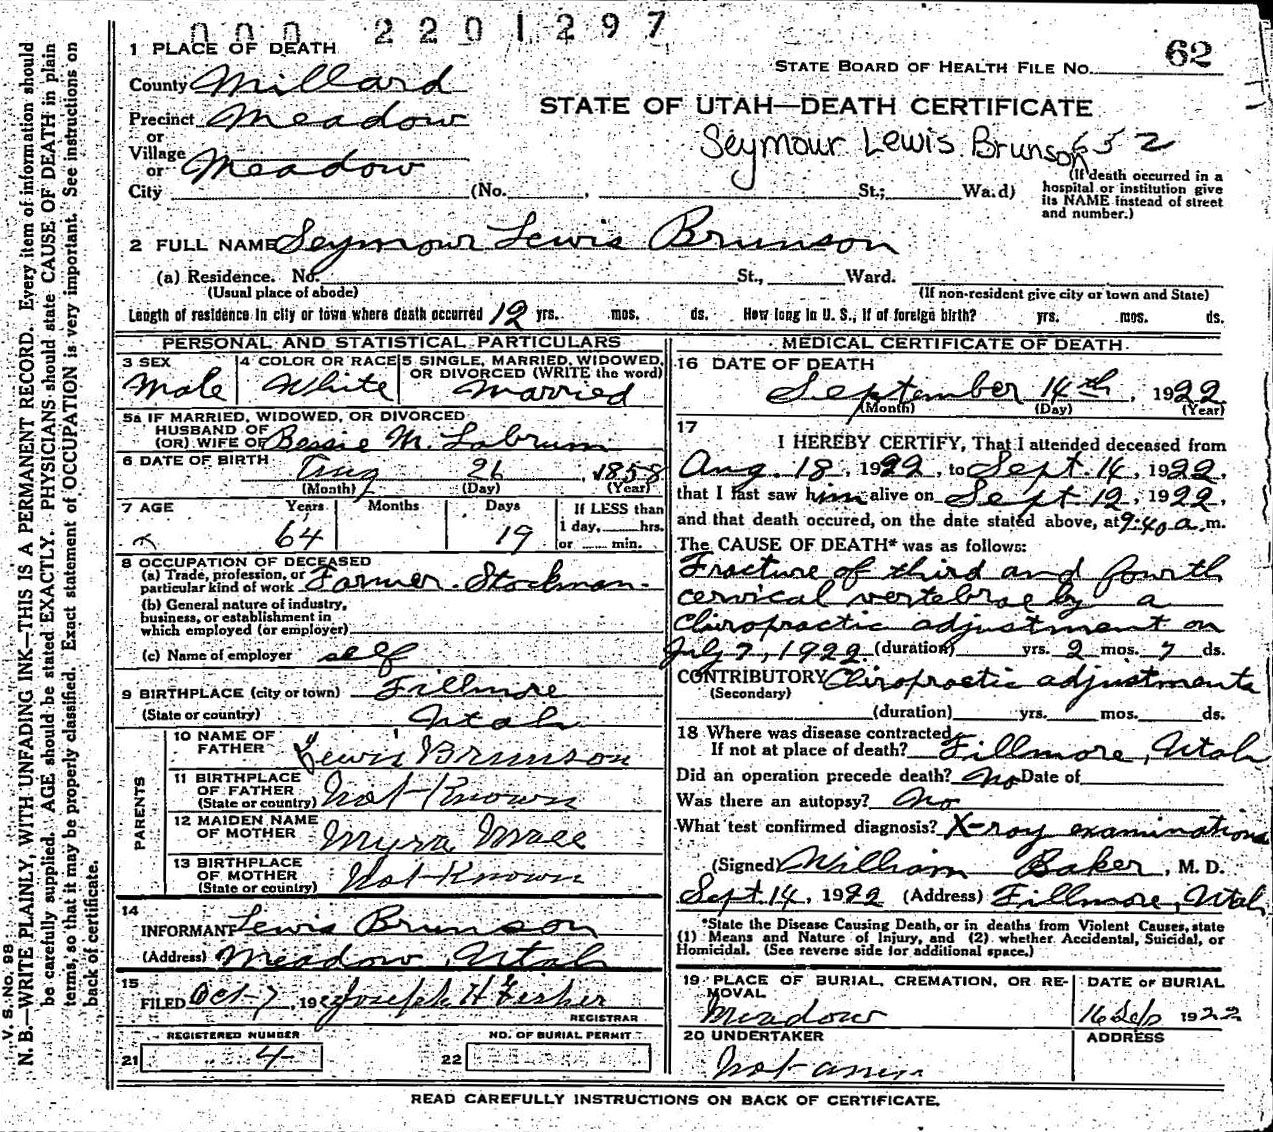 000 2201297
62
1 PLACE OF DEATH
STATE BOARD OF HEALTH FILE NO.
County Millard
STATE OF UTAH—DEATH CERTIFICATE
Precinct Meadow
or
Village
Seymour Lewis Brunson 652
or Meadow
City (No. , St.; Wa.d)
(If death occurred in a
hospital or institution give
its NAME instead of street
and number.)
2 FULL NAME Seymour Lewis Brunson
(a) Residence. No. St., Ward.
(Usual place of abode) (If non-resident give city or town and State)
Length of residence in city or town where death occurred 12 yrs. mos. ds. How long in U. S., if of foreign birth? yrs. mos. ds.
PERSONAL AND STATISTICAL PARTICULARS
3 SEX
Male
4 COLOR OR RACE
White
5 SINGLE, MARRIED, WIDOWED,
OR DIVORCED (WRITE the word)
Married
5a IF MARRIED, WIDOWED, OR DIVORCED
HUSBAND OF
(OR) WIFE OF Bessie M. Labrum
6 DATE OF BIRTH Aug 26, 1858
(Month) (Day) (Year)
7 AGE Years Months Days If LESS than
1 day, hrs.
64 19 or min.
8 OCCUPATION OF DECEASED
(a) Trade, profession, or
particular kind of work Farmer. Stockman.
(b) General nature of industry,
business, or establishment in
which employed (or employer)
(c) Name of employer self
9 BIRTHPLACE (city or town) Fillmore
(State or country) Utah
PARENTS
10 NAME OF
FATHER Lewis Brunson
11 BIRTHPLACE
OF FATHER
(State or country) Not Known
12 MAIDEN NAME
OF MOTHER Myra Mace
13 BIRTHPLACE
OF MOTHER
(State or country) Not Known
14
INFORMANT Lewis Brunson
(Address) Meadow, Utah
15
FILED Oct-7, 192 Joseph H Fisher
REGISTRAR
REGISTERED NUMBER
21 4
NO. OF BURIAL PERMIT
22
MEDICAL CERTIFICATE OF DEATH
16 DATE OF DEATH
September 14th, 1922
(Month) (Day) (Year)
17
I HEREBY CERTIFY, That I attended deceased from
Aug. 18, 1922, to Sept. 14, 1922,
that I last saw him alive on Sept 12, 1922,
and that death occured, on the date stated above, at 9:40 a.m.
The CAUSE OF DEATH* was as follows:
Fracture of third and fourth
cervical vertebrae by a
Chiropractic adjustment on
July 7, 1922. (duration) yrs. 2 mos. 7 ds.
CONTRIBUTORY Chiropractic adjustments
(Secondary)
(duration) yrs. mos. ds.
18 Where was disease contracted
If not at place of death? Fillmore, Utah
Did an operation precede death? No Date of
Was there an autopsy? No
What test confirmed diagnosis? X-ray examinations
(Signed) William Baker, M. D.
Sept. 14, 1922 (Address) Fillmore, Utah
*State the Disease Causing Death, or in deaths from Violent Causes, state
(1) Means and Nature of Injury, and (2) whether Accidental, Suicidal, or
Homicidal. (See reverse side for additional space.)
19 PLACE OF BURIAL, CREMATION, OR RE-
MOVAL
Meadow
DATE OF BURIAL
16 Sep 1922
20 UNDERTAKER
Not any
ADDRESS
READ CAREFULLY INSTRUCTIONS ON BACK OF CERTIFICATE.
V. S. No. 98
N. B.—WRITE PLAINLY, WITH UNFADING INK—THIS IS A PERMANENT RECORD. Every item of information should
be carefully supplied. AGE should be stated EXACTLY. PHYSICIANS should state CAUSE OF DEATH in plain
terms, so that it may be properly classified. Exact statement of OCCUPATION is very important. See instructions on
back of certificate.